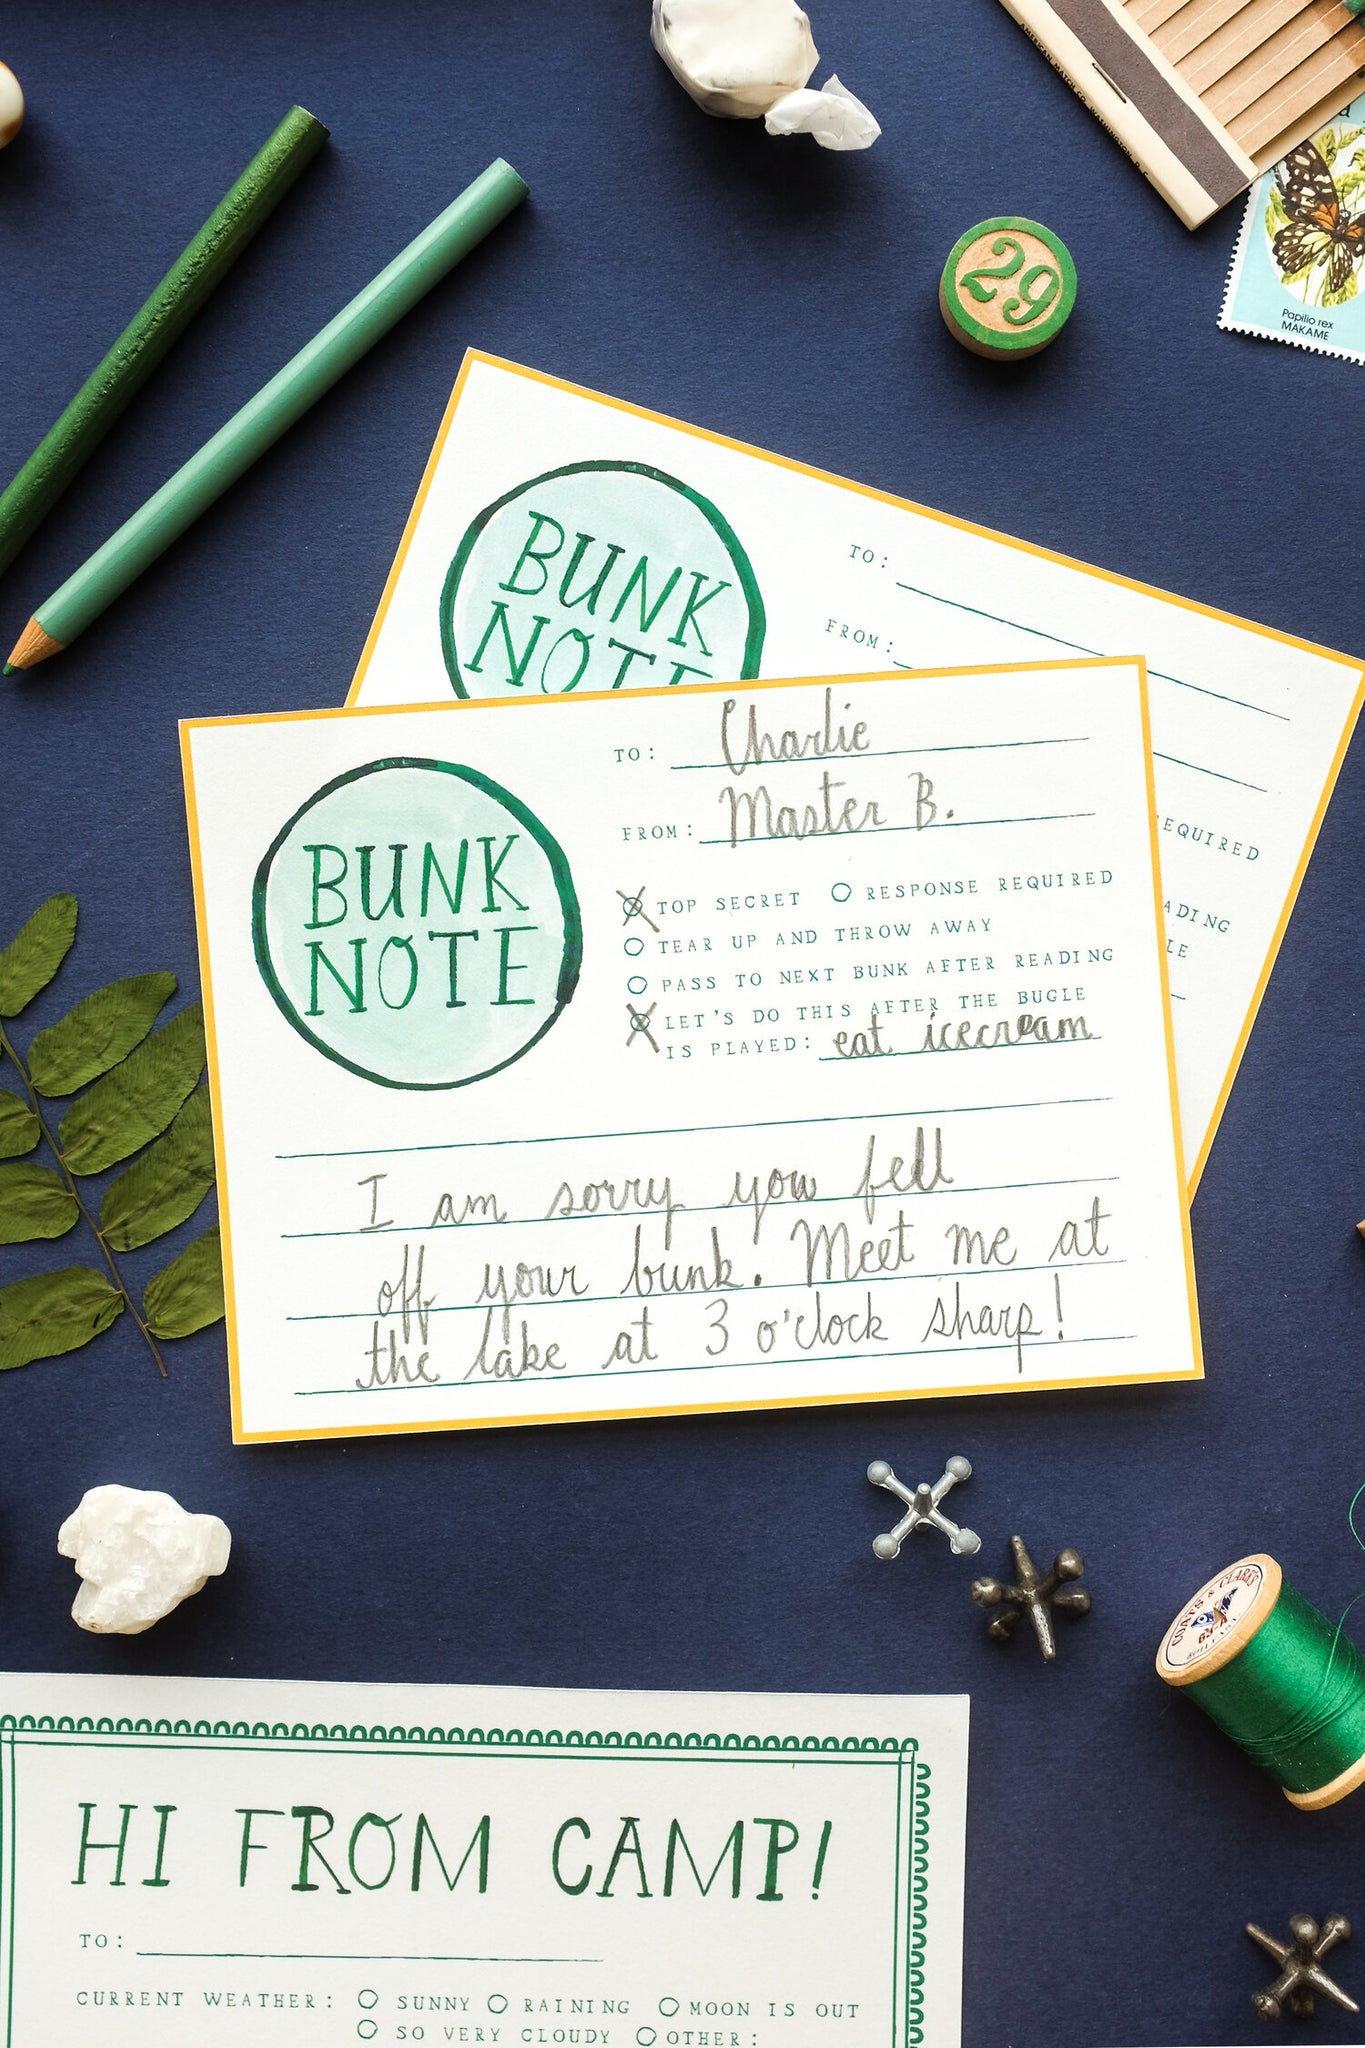 AMERICAN MATCH CO., WASHINGTON, D.C.
29
Papilio rex
MAKAME
BUNK
NOTE
TO:
FROM:
EQUIRED
ADING
LE
BUNK
NOTE
TO: Charlie
FROM: Master B.
TOP SECRET RESPONSE REQUIRED
TEAR UP AND THROW AWAY
PASS TO NEXT BUNK AFTER READING
LET'S DO THIS AFTER THE BUGLE
IS PLAYED: eat icecream
I am sorry you fell
off your bunk. Meet me at
the lake at 3 o'clock sharp!
COATS & CLARK'S
HI FROM CAMP!
TO:
CURRENT WEATHER: SUNNY RAINING MOON IS OUT
SO VERY CLOUDY OTHER: